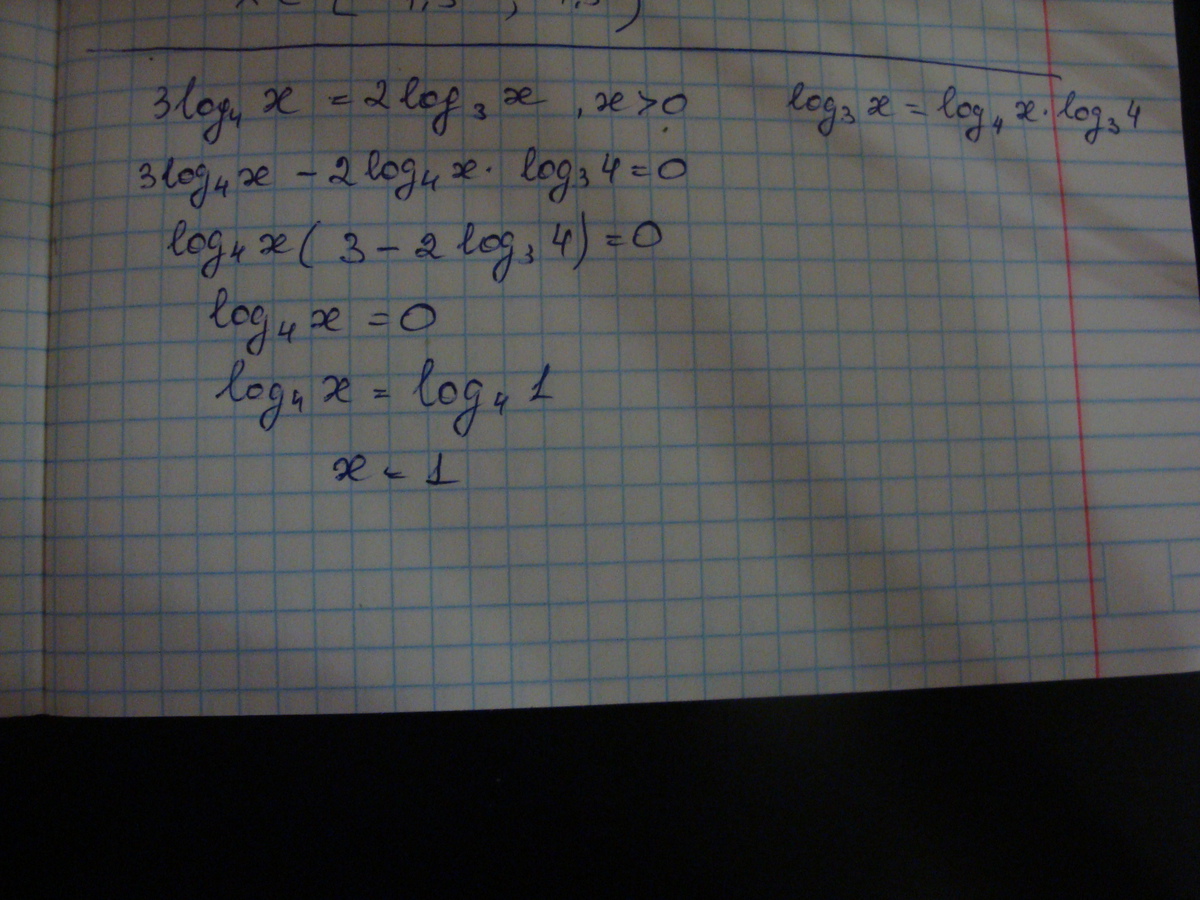 3log₄ x = 2log₃ x , x > 0 log₃ x = log₄ x · log₃ 4
3log₄ x − 2log₄ x · log₃ 4 = 0
log₄ x ( 3 − 2 log₃ 4) = 0
log₄ x = 0
log₄ x = log₄ 1
x = 1